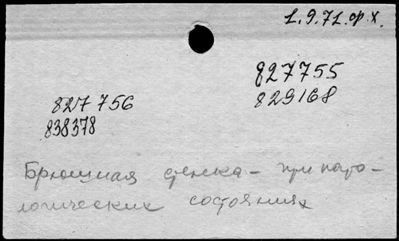 1.9.71.ф.х.
827755
827756
829168
838378
Брюшная стенка – при пато-
логических состояниях